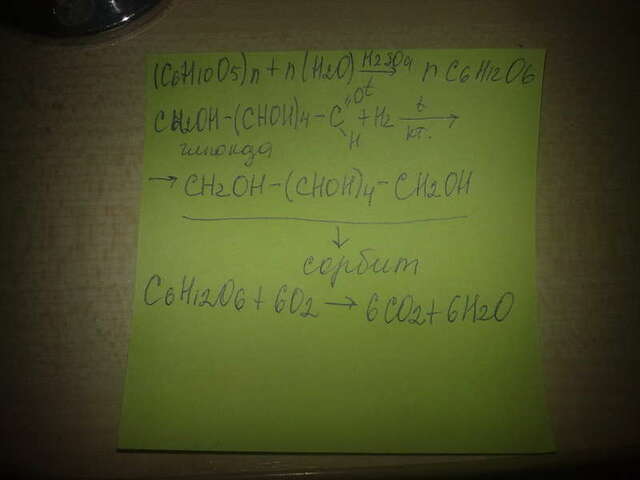 (C6H10O5)n + n(H2O) H2SO4 t → n C6H12O6
CH2OH-(CHOH)4-C "O \H + H2 t кт. →
глюкоза
→ CH2OH-(CHOH)4-CH2OH
↓
сорбит
C6H12O6 + 6O2 → 6CO2 + 6H2O